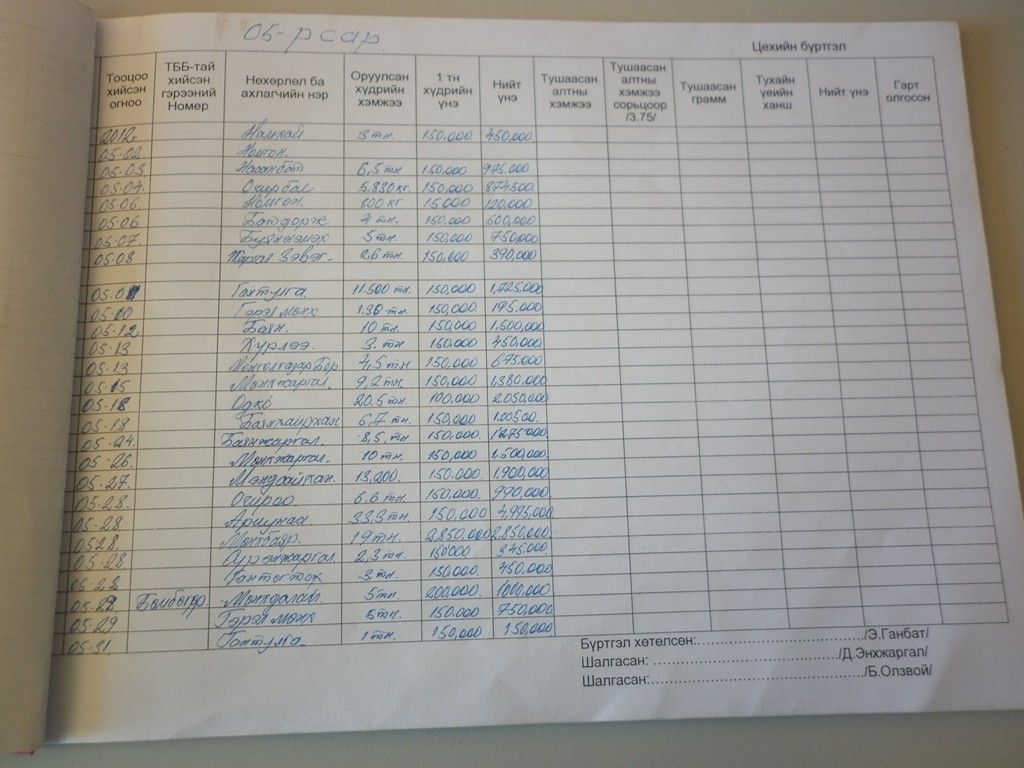 05-р сар
Цехийн бүртгэл
Тооцоо хийсэн огноо ТББ-тай хийсэн гэрээний Номер Нөхөрлөл ба ахлагчийн нэр Оруулсан хүдрийн хэмжээ 1 тн хүдрийн үнэ Нийт үнэ Тушаасан алтны хэмжээ Тушаасан алтны хэмжээ сорьцоор /3.75/ Тушаасан грамм Тухайн үеийн ханш Нийт үнэ Гарт олгосон
2012 Намхай 3тн. 150.000 450,000
05-02 Номгон.
05-03 Насанбат 6,5тн 150,000 975.000
05-04. Очирбал 5.830кг. 150,000 874500
05-06 Номгон. 800кг 15.000 120,000
05-06 Батдорж 4тн. 150.000 600,000
05-07 Буяннэмэх 5тн. 150,000 750,000
05-08 Жаргал Зэвэг. 2,6тн. 150,000 390,000
Гантулга. 11.500тн. 150,000
Гэрэлмөнх 1.30тн 150,000 195.000
05-12 Баян. 10тн 150,000 1,500,000
05-13 Хүрлээ. 3.тн 150.000 450,000
05-13 4,5тн 150.000 675.000
05-15 Мөнхжаргал. 9,2тн. 150,000 1,380,000
05-18 Одко 20.5тн 100,000 2,050,000
05-18 Баянхайрхан 6,7тн. 150,000
05-24. Баянжаргал. 8,5тн 150.000. 1'275'000
05-26. Мөнхжаргал. 10тн 150,000 1,500,000
05-27. 13,200. 150.000 1.900,000
05-28. Очироо 6.6тн. 150,000. 990,000
05-28 Ариунаа. 33.3тн. 150,000 4,995,000
0528 Мөнхбаяр. 19тн 2.850.000 2,850,000
05-28 Сүрэнжаргал. 2,3тн. 150'000 345.000
Гантогтох 3тн. 150,000. 450,000
05-29. Бомбогор Мөнхдалай. 5тн 200.000. 1000.000
05-29 Гэрэлмөнх 5тн. 150.000 750,000
05-31 Гантулга. 1тн. 150,000 150,000
Бүртгэл хөтөлсөн:............................/Э.Ганбат/
Шалгасан: ................................/Д.Энхжаргал/
Шалгасан:...................................../Б.Олзвой/